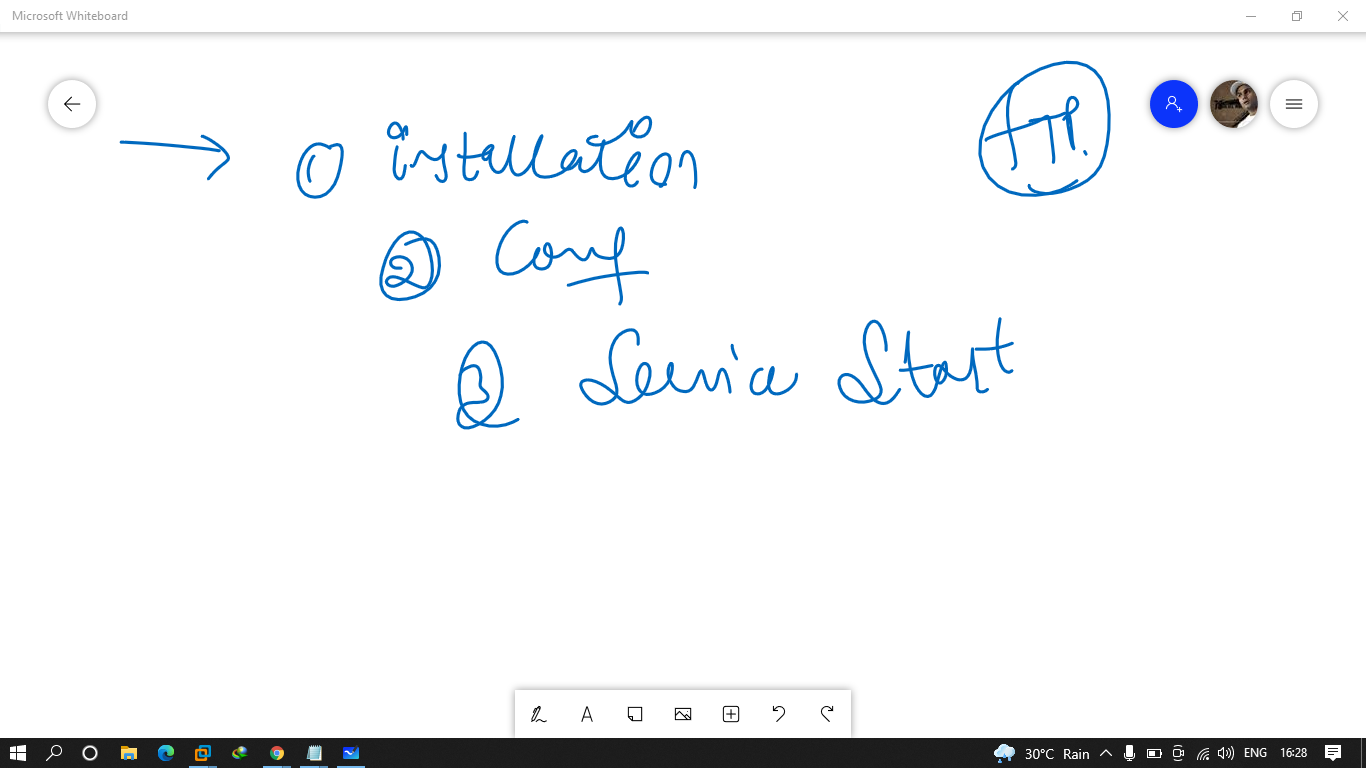 Microsoft Whiteboard
FTP.
① installation
② Conf
③ Service Start
30°C Rain
ENG
16:28